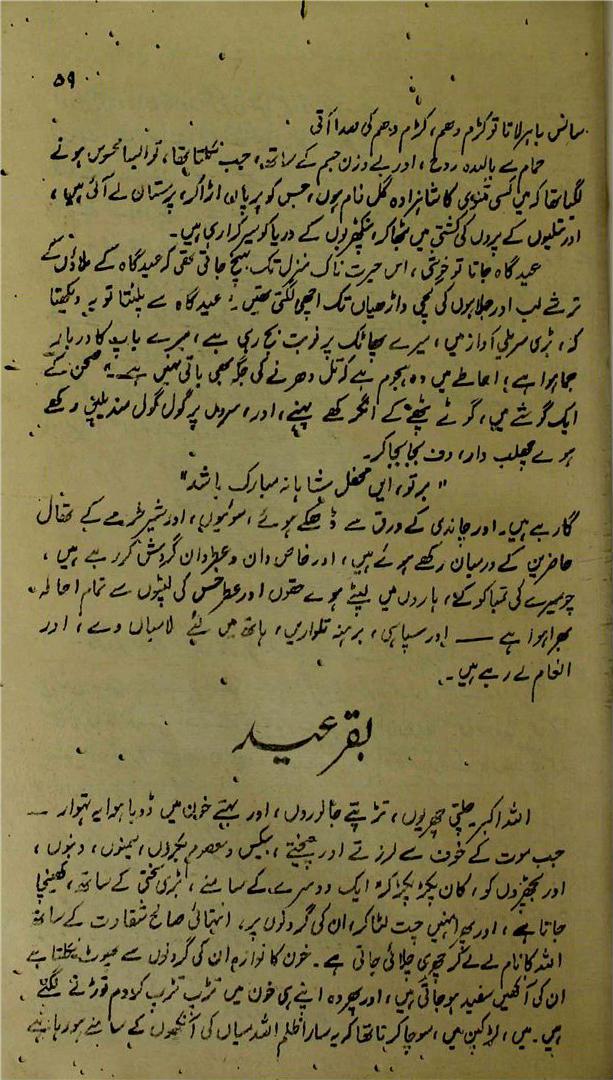 ۵۹
سانس باہر لاتا تو کڑم دھم، کڑم دھم کی صدا آتی
حمام سے بالیدہ روح، اور بے وزن جسم کے ساتھ، جب نکلتا تھا، تو ایسا محسوس ہونے
لگتا تھا کہ میں کسی مثنوی کا شاہزادہ گل نام ہوں، جس کو پریاں اڑا کر، پرستان لے آئی ہیں،
اور تتلیوں کے پروں کی کشتی میں بٹھا کر، پنکھڑیوں کے دریا کو سیر کرا رہی ہیں۔
عیدگاہ جاتا تو خوشی، اس حیرت ناک منزل تک پہنچ جاتی تھی کہ عیدگاہ کے ملاؤں کے
ترشے لب اور جلاہوں کی نچی داڑھیاں تک اچھی لگتی تھیں۔ عیدگاہ سے پلٹتا تو یہ دیکھتا
کہ، بڑی سریلی آواز میں، میرے پھاٹک پر نوبت بج رہی ہے، میرے باپ کا دربار
جما ہوا ہے، احاطے میں وہ ہجوم ہے کہ تل دھرنے کی جگہ بھی باقی نہیں ہے۔ صحن کے
ایک گوشے میں، گوٹے پٹھے کے انگرکھے پہنے، اور، سروں پر گول گول مندیلیں رکھے
ہوے چھلب دار، دف بجا بجا کر۔
"بر تو، ایں محفل شاہانہ مبارک باشد"
گا رہے ہیں۔ اور چاندی کے ورق سے ڈھکے ہوئے، سوئیوں، اور شیر خرمے کے تھال
حاضرین کے درمیان رکھے ہوئے ہیں، اور خاص دان و عطردان گردش کر رہے ہیں،
چوہیرے کی تمباکو کے، ہاروں میں لپٹے ہوے حقوں اور عطر خس کی لپٹوں سے تمام احاطہ
بھرا ہوا ہے — اور سپاہی، برہنہ تلواریں، ہاتھ میں لئے سلامیاں دے، اور
انعام لے رہے ہیں۔
بقر عید
اللہ اکبر چلتی چھریوں، تڑپتے جانوروں، اور بہتے خون میں ڈوبا ہوا یہ تہوار —
جب موت کے خوف سے لرزتے اور چیختے، بیکس و معصوم بکروں، میمنوں، دنبوں،
اور بچھڑوں کو، کان پکڑ پکڑ کر، ایک دوسرے کے سامنے، بڑی سختی کے ساتھ، کھینچا
جاتا ہے، اور پھر انہیں چت لٹا کر، ان کی گردنوں پر، انتہائی صالح شقاوت کے ساتھ
اللہ کا نام لے لے کر چھری چلائی جاتی ہے۔ خون کا فوارہ ان کی گردنوں سے چھوٹ نکلتا ہے
ان کی آنکھیں سفید ہو جاتی ہیں، اور پھر وہ اپنے ہی خون میں تڑپ تڑپ کر دم توڑنے لگتے
ہیں۔ میں، لڑکپن میں، سوچا کرتا تھا کہ یہ سارا ظلم اللہ میاں کی آنکھوں کے سامنے ہو رہا ہے